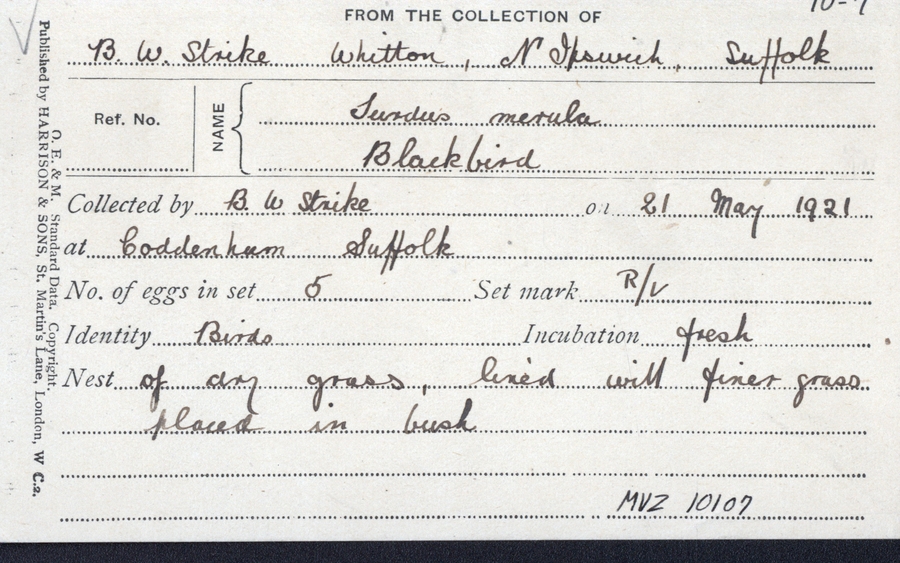 FROM THE COLLECTION OF
B. W. Strike Whitton, N Ipswich, Suffolk
Ref. No.
NAME
Turdus merula
Blackbird
Collected by B. W Strike on 21 May 1921
at Coddenham Suffolk
No. of eggs in set 5 Set mark R/V
Identity Birds Incubation fresh
Nest of dry grass, lined with finer grass
placed in bush
MVZ 10107
O. E. & M. Standard Data. Copyright.
Published by HARRISON & SONS, St. Martin's Lane, London, W C.2.